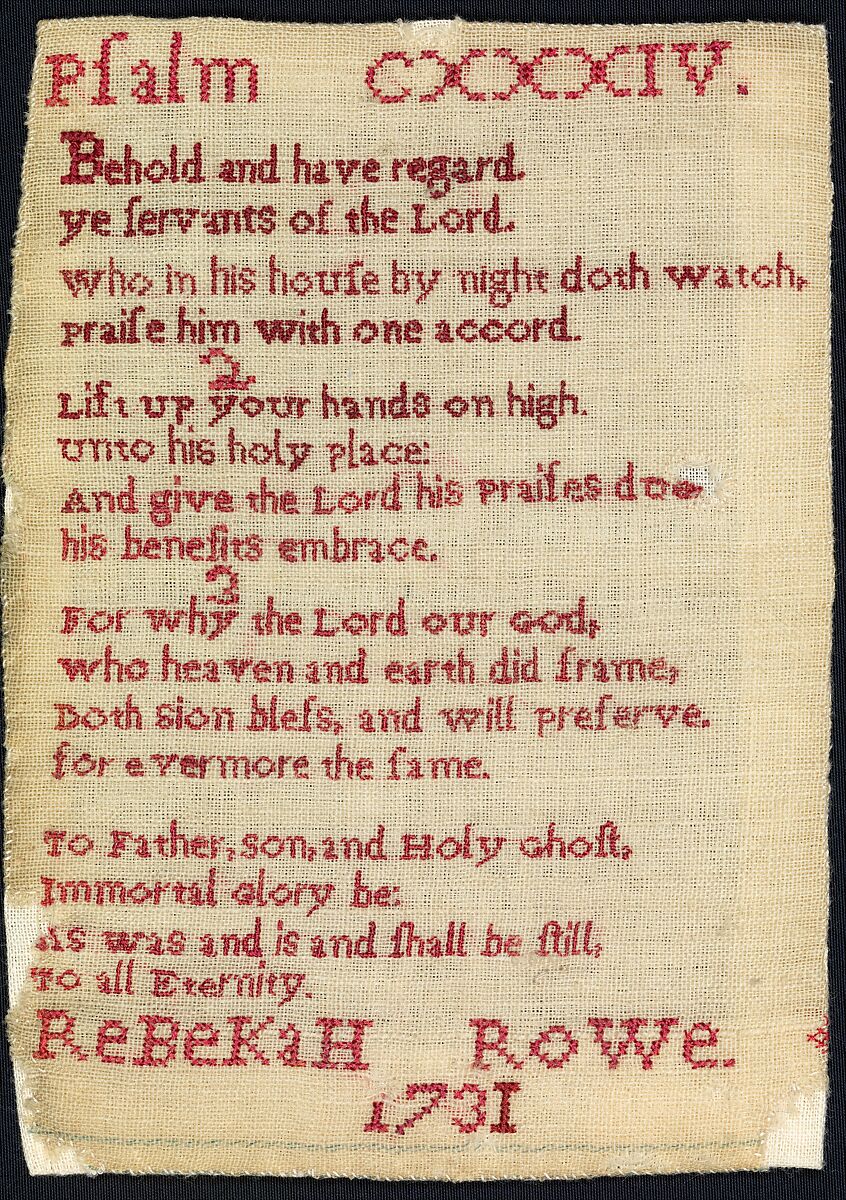 Pſalm CXXXIV.
Behold and have regard.
ye ſervants of the Lord.
Who in his houſe by night doth watch,
Praiſe him with one accord.
2.
Lift up your hands on high.
Unto his holy place:
And give the Lord his Praiſes due
his benefits embrace.
3
For why the Lord our God,
Who heaven and earth did frame,
Doth Sion bleſs, and will preſerve.
for evermore the ſame.
To Father, Son, and Holy Ghoſt,
Immortal Glory be:
As was and is and ſhall be ſtill,
To all Eternity.
ReBeKaH RoWe.
1731